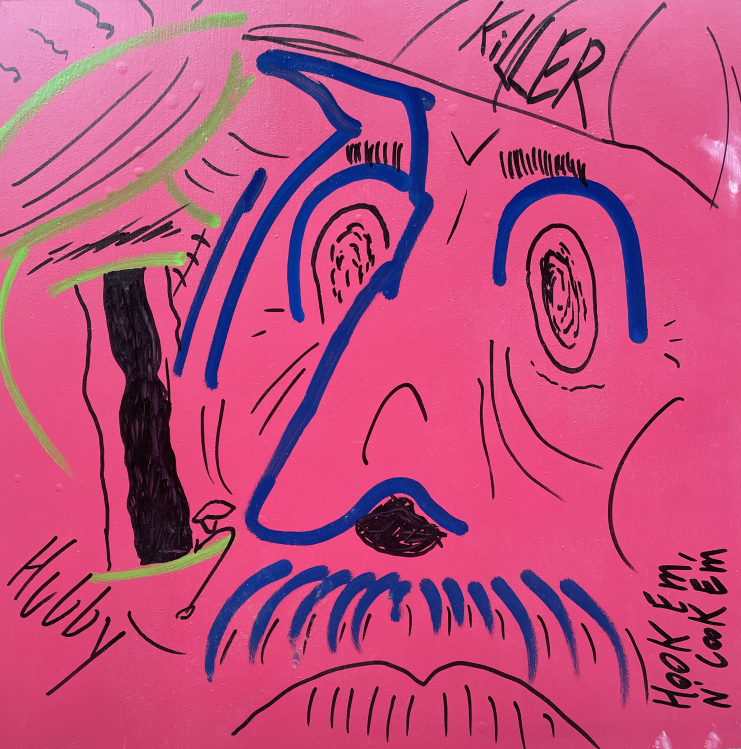 KiLLER
Hubby
HOOK Em,
N' COOK Em